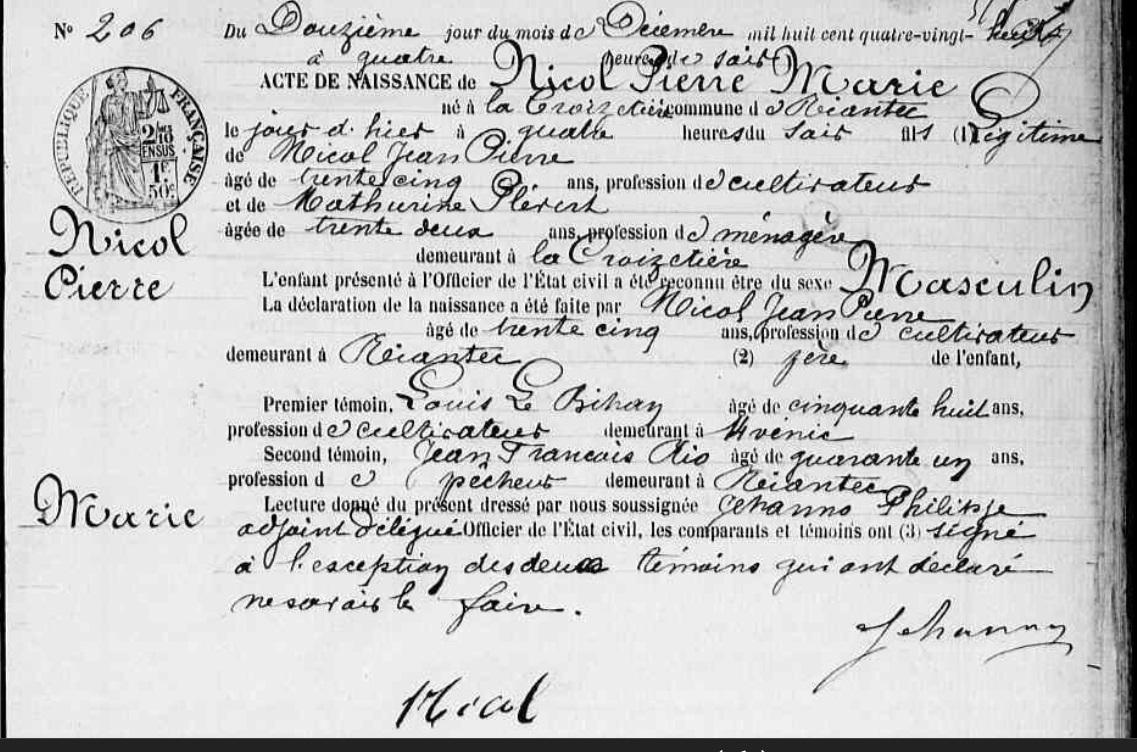 N° 206 Du Douzième jour du mois de Décembre mil huit cent quatre-vingt- huit
à quatre heures du soir
ACTE DE NAISSANCE de Nicol Pierre Marie
né à la Croizetière commune de Riantec
le jour d'hier à quatre heures du soir fils (1) légitime
de Nicol Jean Pierre
âgé de trente cinq ans, profession de cultivateur
et de Mathurine
âgée de trente deux ans, profession de ménagère
demeurant à la Croizetière
L'enfant présenté à l'Officier de l'État civil a été reconnu être du sexe Masculin
La déclaration de la naissance a été faite par Nicol Jean Pierre
âgé de trente cinq ans, profession de cultivateur
demeurant à Riantec (2) père de l'enfant,
Premier témoin, Louis Le Bihan âgé de cinquante huit ans,
profession de cultivateur demeurant à
Second témoin, Jean Francois Rio âgé de quarante un ans,
profession de pêcheur demeurant à Riantec
Lecture donné du présent dressé par nous soussignée Jehanno Philippe
adjoint délégué Officier de l'État civil, les comparants et témoins ont (3) signé
à l'exception des deux témoins qui ont déclaré
ne savoir le faire.
Jehanno
Nicol
RÉPUBLIQUE FRANÇAISE
Nicol
Pierre
Marie